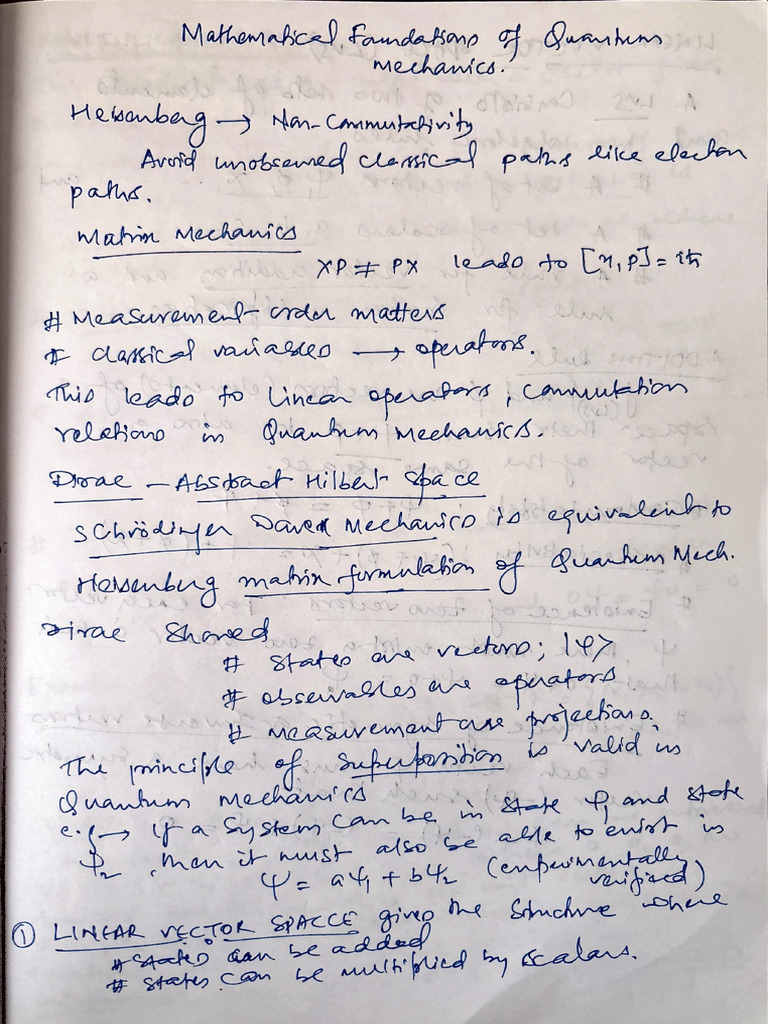 Mathematical Foundations of Quantum
mechanics.
Heisenberg → Non-Commutativity
Avoid unobserved classical paths like electron
paths.
Matrix Mechanics
XP ≠ PX leads to [x, p] = iħ
# Measurement order matters
# classical variables → operators.
This leads to Linear operators, commutation
relations in Quantum Mechanics.
Dirac - Abstract Hilbert Space
Schrödinger Mechanics is equivalent to
Heisenberg matrix formulation of Quantum Mech.
Dirac Showed
# States are vectors; |ψ>
# observables are operators.
# measurement are projections.
The principle of Superposition is valid in
Quantum mechanics
e.g → If a System can be in state ψ₁ and state
ψ₂, then it must also be able to exist in
ψ = aψ₁ + bψ₂ (experimentally
verified)
① LINEAR VECTOR SPACCE gives the Structure where
# States can be added
# States can be multiplied by scalars.